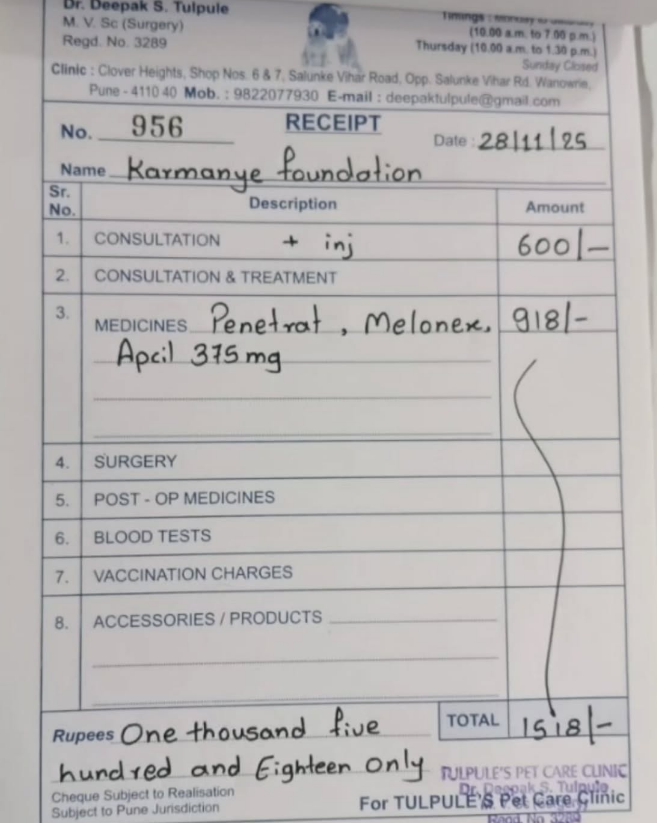 Dr. Deepak S. Tulpule
M. V. Sc (Surgery)
Regd. No. 3289
Timings : Monday to Saturday
(10.00 a.m. to 7.00 p.m.)
Thursday (10.00 a.m. to 1.30 p.m.)
Sunday Closed
Clinic : Clover Heights, Shop Nos. 6 & 7, Salunke Vihar Road, Opp. Salunke Vihar Rd. Wanowrie,
Pune - 4110 40 Mob. : 9822077930 E-mail : deepaktulpule@gmail.com
No. 956 RECEIPT Date : 28/11/25
Name Karmanye foundation
Sr. No. Description Amount
1. CONSULTATION + inj 600/-
2. CONSULTATION & TREATMENT
3. MEDICINES Penetrat, Melonex, 918/-
Apcil 375mg
4. SURGERY
5. POST - OP MEDICINES
6. BLOOD TESTS
7. VACCINATION CHARGES
8. ACCESSORIES / PRODUCTS
Rupees One thousand five TOTAL 1518/-
hundred and Eighteen only
TULPULE'S PET CARE CLINIC
Dr. Deepak S. Tulpule
Cheque Subject to Realisation
Subject to Pune Jurisdiction
For TULPULE'S Pet Care Clinic
Regd. No. 3289